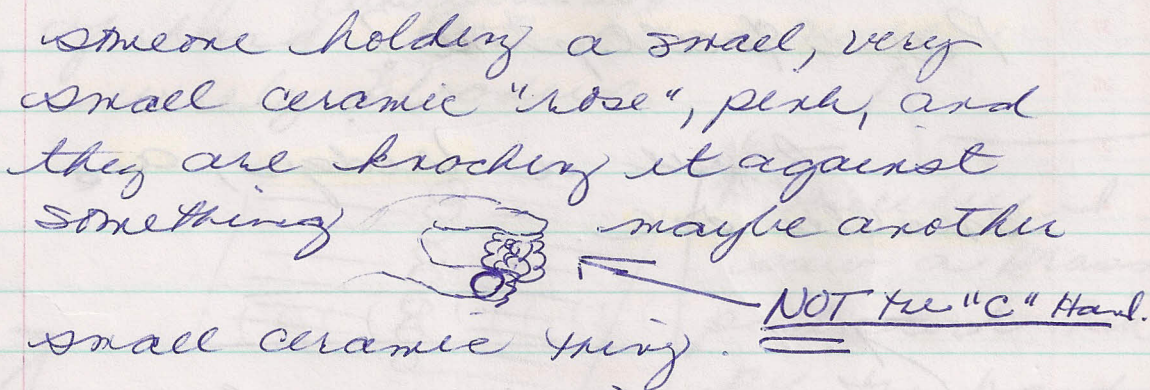 someone holding a small, very
small ceramic "rose", pink, and
they are knocking it against
something maybe another
NOT the "C" Hand.
small ceramic thing.